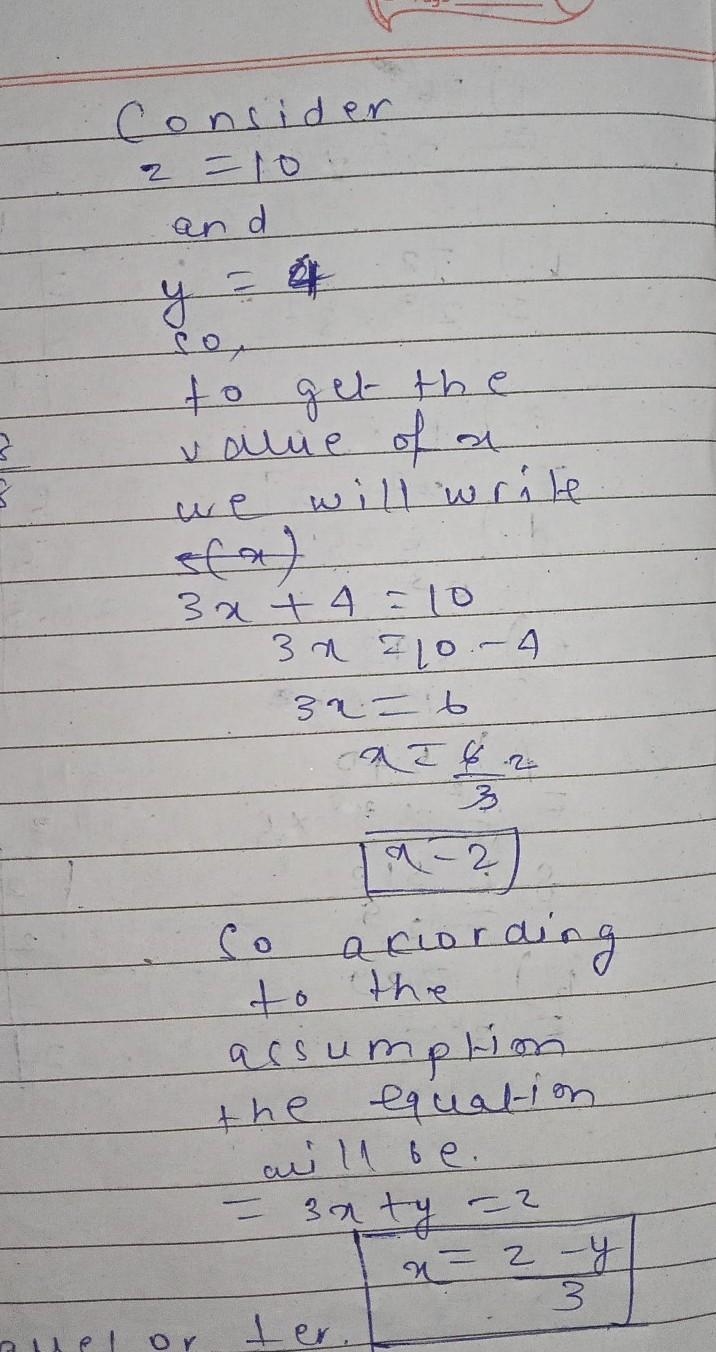 Consider
z = 10
and
y = 4
so,
to get the
value of x
we will write
3x + 4 = 10
3x = 10 - 4
3x = 6
x = 6 2
3
x = 2
so according
to the
assumption
the equation
will be.
= 3x + y = z
x = z - y
3
or ter.